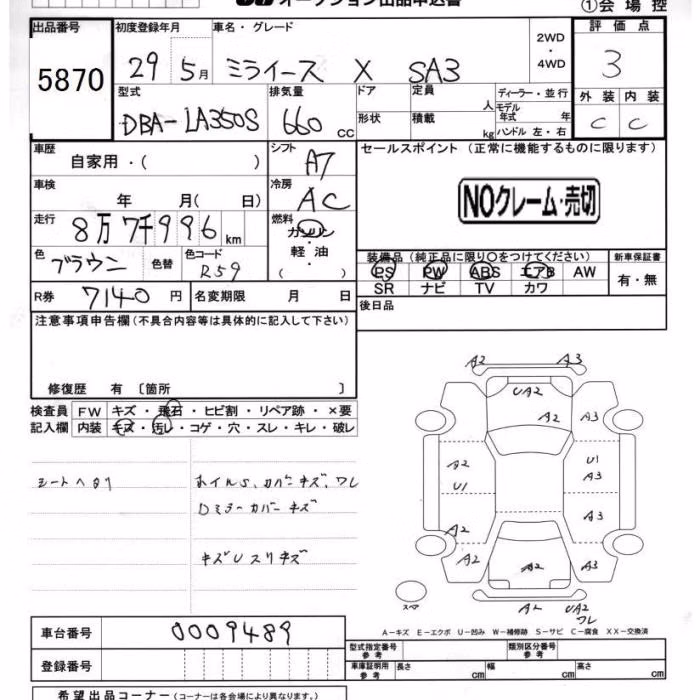 オークション出品申込書
①会場控
出品番号 初度登録年月 車名・グレード 2WD ・ 4WD 評価点
5870 29年5月 ミライース X SA3 3
型式 排気量 ドア 定員 人 ディーラー・並行 外装 内装
DBA-LA350S 660cc 形状 積載 kg モデル年式 年 ハンドル 左・右 C C
車歴 自家用・( ) シフト A7 セールスポイント (正常に機能するものに限ります)
車検 年 月( 日) 冷房 AC NOクレーム・売切
走行 8万7千996km 燃料 ガソリン・軽油・( )
色 ブラウン 色替 色コード R59
装備品 (純正品に限り○をつけてください) 新車保証書
PS PW ABS エアB AW 有・無
SR ナビ TV カワ
R券 7140円 名変期限 月 日 後日品
注意事項申告欄(不具合内容等は具体的に記入して下さい)
修復歴 有 〔箇所 〕
検査員 FW キズ・飛石・ヒビ割・リペア跡・×要
記入欄 内装 キズ・汚レ・コゲ・穴・スレ・キレ・破レ
シートヘタリ ホイルS、カバーキズ、ワレ
Dミラーカバーキズ
キズUスリキズ
A2 A3
UA2
A2 A3
A2 U1
U1 A3
A3
A2
A2 A2 A3
スペア A2 UA2
ワレ
A-キズ E-エクボ U-凹み W-補修跡 S-サビ C-腐食 XX-交換済
車台番号 0009489 型式指定番号 参考 類別区分番号 参考
登録番号 車庫証明用 参考 長さ cm 幅 cm 高さ cm
希望出品コーナー (コーナーは各会場により異なります。)